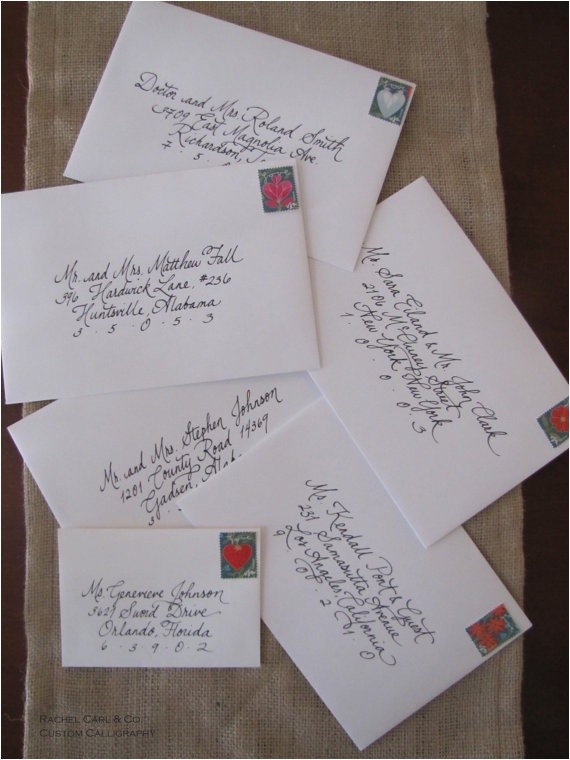 Doctor and Mrs. Roland Smith
3709 East Magnolia Ave.
Richardson,
7 . 5 .
Mr. and Mrs. Matthew Fall
396 Hardwick Lane, #236
Huntsville, Alabama
3 . 5 . 0 . 5 . 3
Ms. Sara Eiland & Mr. John Clark
2106 McCuney Street
New York, New York
1 . 0 . 0 . 0 . 3
Mr. and Mrs. Stephen Johnson
1201 County Road 14369
Gadsen, Alaba
3
Ms. Kendall Pont & Guest
231 Samasutta Avenue
Los Angeles, California
9 . 0 . 2 . 1 . 0
Ms. Genevieve Johnson
3627 Sword Drive
Orlando, Florida
6 . 3 . 9 . 0 . 2
Rachel Carl & Co.
Custom Calligraphy